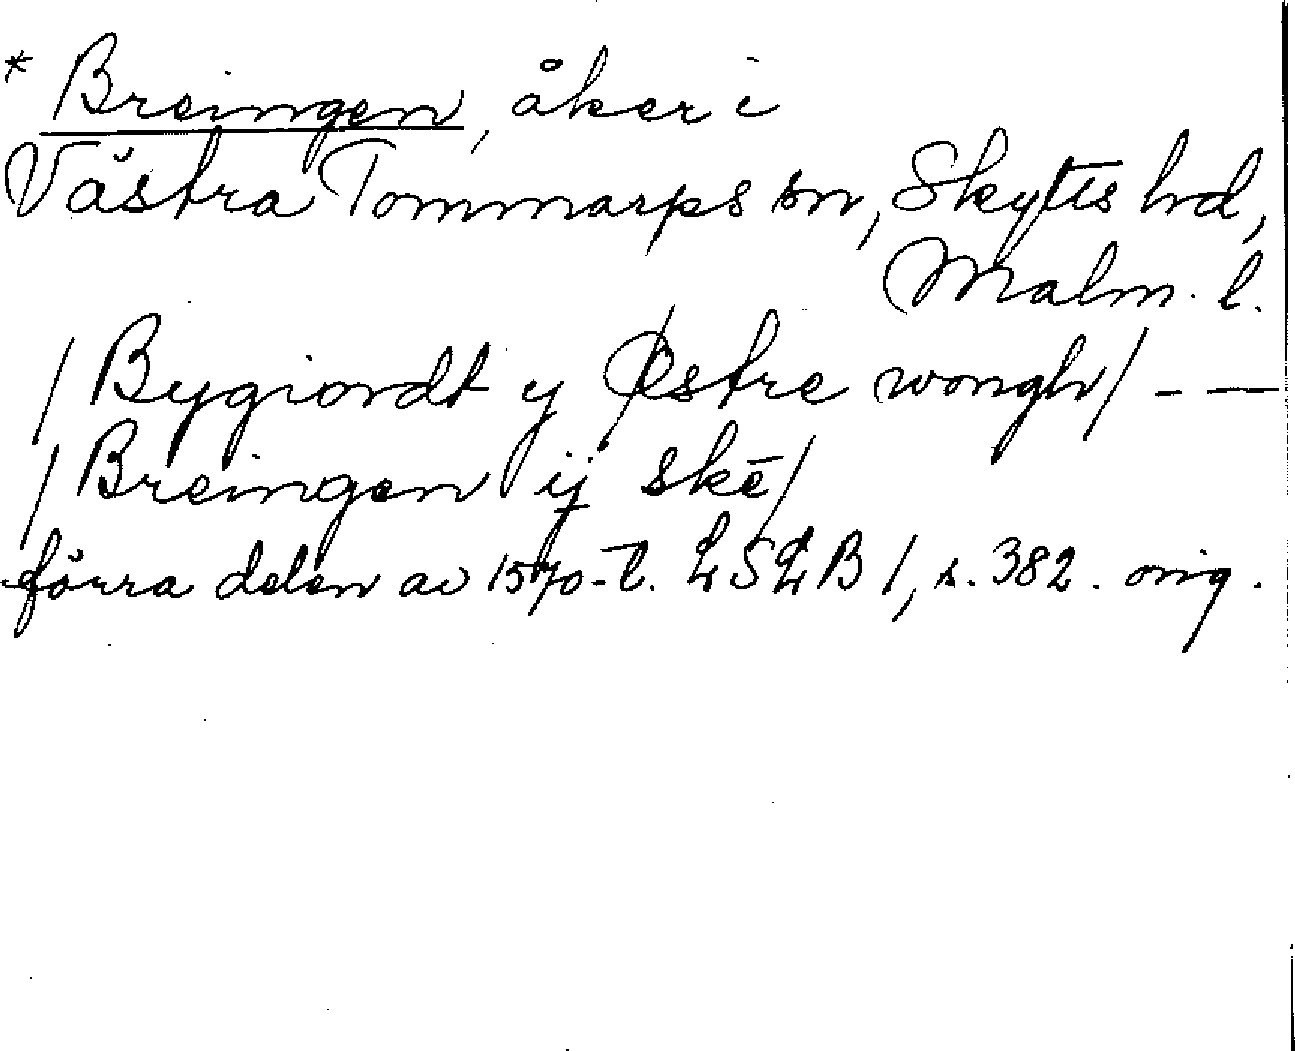 * Breingen, åker i
Västra Tommarps sn, Skytts hd,
Malm. l.
/ Bygiordt y Østre wongh / - —
/ Breingen ij skē /
förra delen av 1570-t. LSLB 1, s. 382. orig.